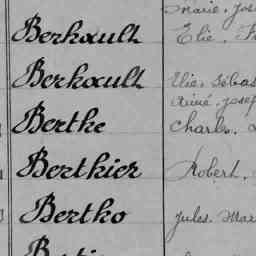 Marie, Jos
Berhault Elie, F
Berhault Elie, Sébas
Aimé, Josep
Berthe Charles,
Berthier Robert,
Bertho Jules, Mar